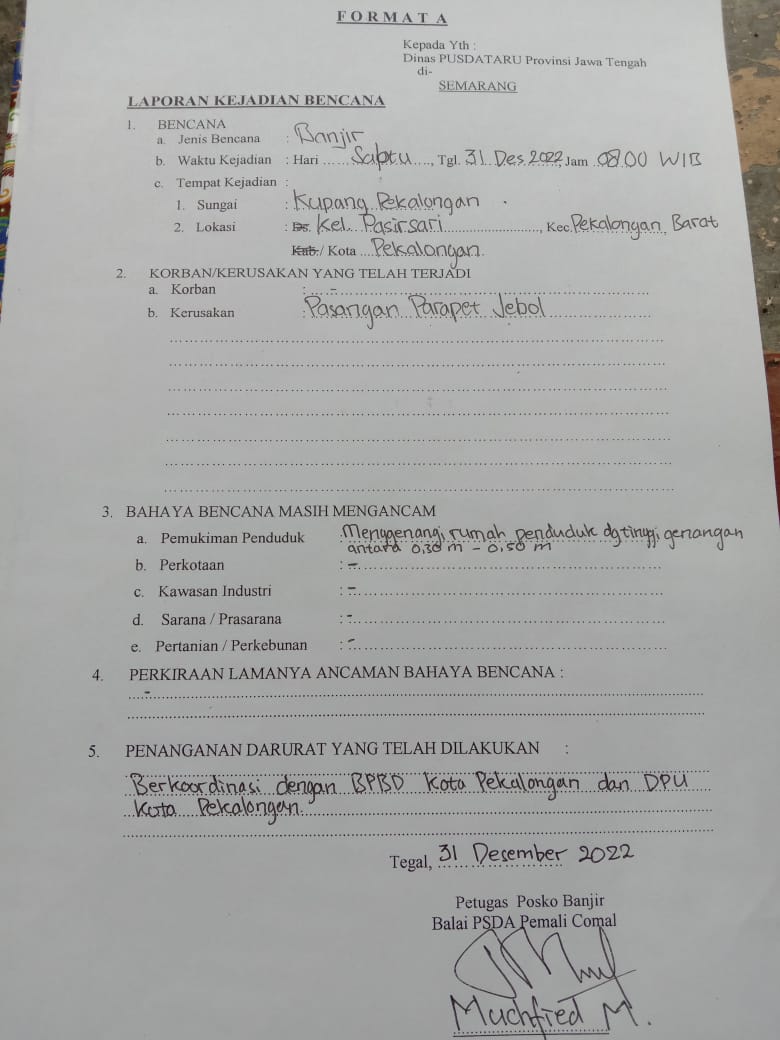 FORMAT A
Kepada Yth :
Dinas PUSDATARU Provinsi Jawa Tengah
di-
SEMARANG
LAPORAN KEJADIAN BENCANA
1. BENCANA
a. Jenis Bencana : Banjir
b. Waktu Kejadian : Hari ...... Sabtu ......, Tgl. 31 Des 2022, Jam 08.00 WIB
c. Tempat Kejadian :
1. Sungai : Kupang Pekalongan
2. Lokasi : Ds. Kel. Pasirsari ......................, Kec. Pekalongan Barat
Kab./ Kota .... Pekalongan.
2. KORBAN/KERUSAKAN YANG TELAH TERJADI
a. Korban : -
b. Kerusakan : Pasangan Parapet Jebol
3. BAHAYA BENCANA MASIH MENGANCAM
a. Pemukiman Penduduk : Menggenangi rumah penduduk dg tinggi genangan
antara 0,30 m - 0,50 m
b. Perkotaan : -
c. Kawasan Industri : -
d. Sarana / Prasarana : -
e. Pertanian / Perkebunan : -
4. PERKIRAAN LAMANYA ANCAMAN BAHAYA BENCANA :
-
5. PENANGANAN DARURAT YANG TELAH DILAKUKAN :
Berkoordinasi dengan BPBD Kota Pekalongan dan DPU
Kota Pekalongan.
Tegal, 31 Desember 2022
Petugas Posko Banjir
Balai PSDA Pemali Comal
Muchfied M.